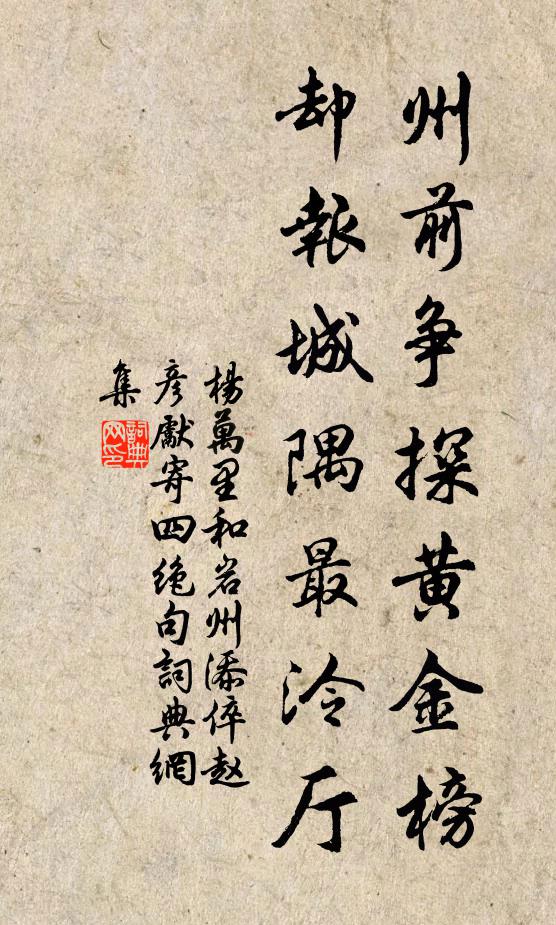 州前争探黄金榜
却報城隅最泠厅
楊萬里和岩州添倅赵
彦獻寄四绝句詞典網
集
詞典
网印